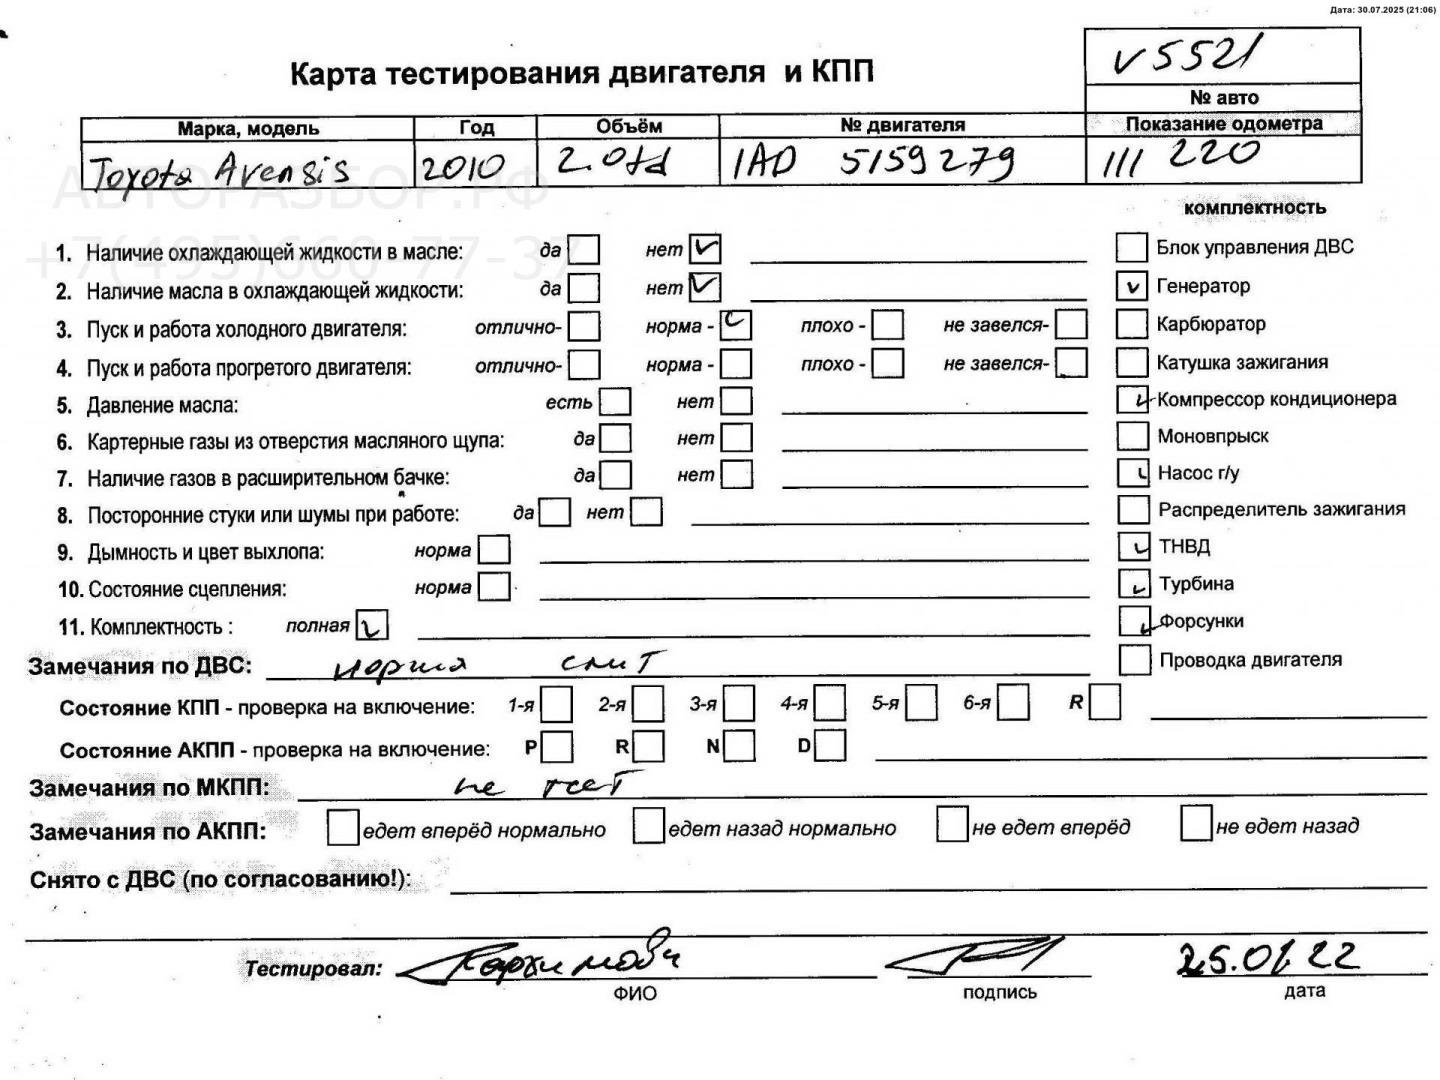 Дата: 30.07.2025 (21:06)
v5521
Карта тестирования двигателя и КПП
№ авто
Марка, модель Год Объём № двигателя Показание одометра
Toyota Avensis 2010 2.0td 1AD 5159279 111 220
АВТОРАЗБОР.РФ
+7(495)668-77-37
комплектность
1. Наличие охлаждающей жидкости в масле: да нет Блок управления ДВС
2. Наличие масла в охлаждающей жидкости: да нет Генератор
3. Пуск и работа холодного двигателя: отлично- норма - плохо - не завелся- Карбюратор
4. Пуск и работа прогретого двигателя: отлично- норма - плохо - не завелся- Катушка зажигания
5. Давление масла: есть нет Компрессор кондиционера
6. Картерные газы из отверстия масляного щупа: да нет Моновпрыск
7. Наличие газов в расширительном бачке: да нет Насос г/у
8. Посторонние стуки или шумы при работе: да нет Распределитель зажигания
9. Дымность и цвет выхлопа: норма ТНВД
10. Состояние сцепления: норма Турбина
11. Комплектность : полная Форсунки
Замечания по ДВС: норма Проводка двигателя
Состояние КПП - проверка на включение: 1-я 2-я 3-я 4-я 5-я 6-я R
Состояние АКПП - проверка на включение: P R N D
Замечания по МКПП: не
Замечания по АКПП: едет вперёд нормально едет назад нормально не едет вперёд не едет назад
Снято с ДВС (по согласованию!):
Тестировал: 25.01.22
ФИО подпись дата